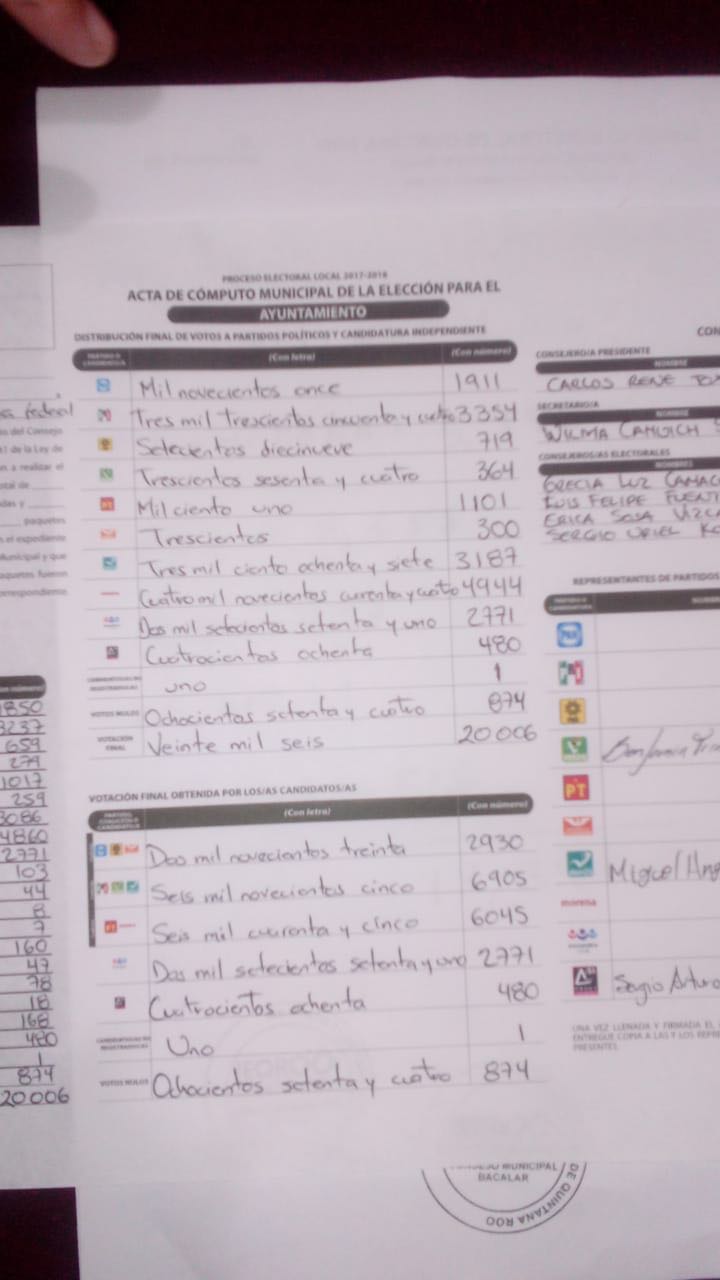 PROCESO ELECTORAL LOCAL 2017-2018
ACTA DE CÓMPUTO MUNICIPAL DE LA ELECCIÓN PARA EL
AYUNTAMIENTO
DISTRIBUCIÓN FINAL DE VOTOS A PARTIDOS POLÍTICOS Y CANDIDATURA INDEPENDIENTE
(Con letra) (Con número)
Mil novecientos once 1911
Tres mil trescientos cincuenta y cuatro 3354
Setecientos diecinueve 719
Trescientos sesenta y cuatro 364
PT Mil ciento uno 1101
Trescientos 300
Tres mil ciento ochenta y siete 3187
Cuatro mil novecientos curenta y cuatro 4944
Dos mil setecientos setenta y uno 2771
Cuatrocientos ochenta 480
uno 1
VOTOS NULOS Ochocientos setenta y cuatro 874
VOTACIÓN FINAL Veinte mil seis 20006
VOTACIÓN FINAL OBTENIDA POR LOS/AS CANDIDATOS/AS
(Con letra) (Con número)
Dos mil novecientos treinta 2930
Seis mil novecientos cinco 6905
PT Seis mil cuarenta y cinco 6045
Dos mil setecientos setenta y uno 2771
Cuatrocientos ochenta 480
Uno 1
VOTOS NULOS Ochocientos setenta y cuatro 874
federal
del Consejo
de la Ley de
a realizar el
paquetes
el expediente
Municipal y que
paquetes fueron
1850
3237
659
279
1017
259
3086
4860
2771
103
44
8
7
160
47
78
18
168
480
1
874
20006
CON
CONSEJERO/A PRESIDENTE
NOMBRE
CARLOS RENE
SECRETARIO/A
NOMBRE
WILMA
CONSEJEROS/AS ELECTORALES
NOMBRES
GRECIA LUZ
LUIS FELIPE
ERICA SOSA
SERGIO URIEL
REPRESENTANTES DE PARTIDOS
PAN
PRI
PRD
VERDE
PT
Miguel
morena
Sergio Arturo
UNA VEZ LLENADA Y FIRMADA EL
ENTREGUE COPIA A LAS Y LOS
PRESENTES.
MUNICIPAL
BACALAR
DE QUINTANA ROO